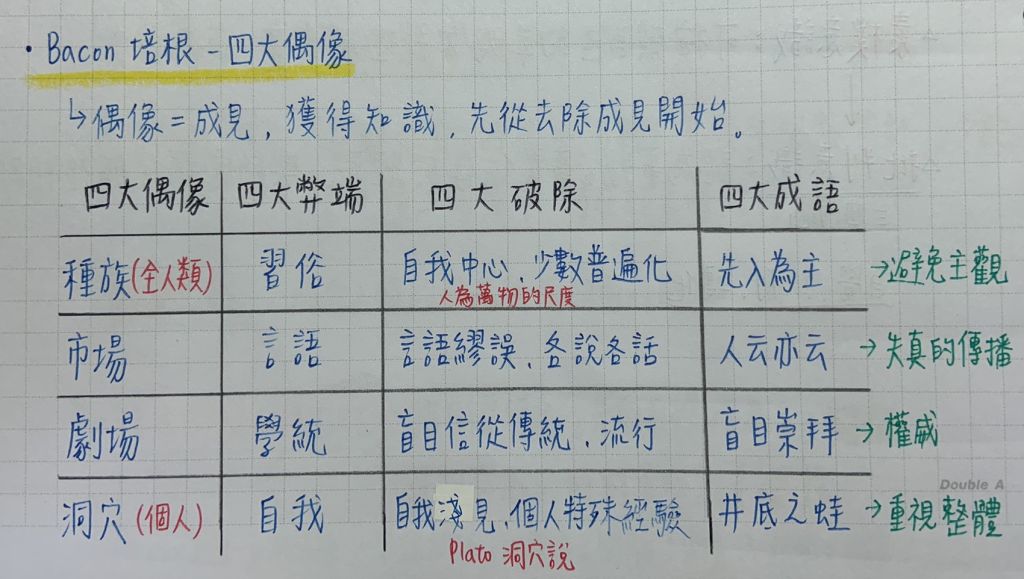 ・Bacon 培根 - 四大偶像
↳偶像=成見，獲得知識，先從去除成見開始。
四大偶像 四大弊端 四大破除 四大成語
種族(全人類) 習俗 自我中心、少數普遍化 先入為主 →避免主觀
人為萬物的尺度
市場 言語 言語繆誤、各說各話 人云亦云 →失真的傳播
劇場 學統 盲目信從傳統、流行 盲目崇拜 →權威
Double A
洞穴(個人) 自我 自我淺見、個人特殊經驗 井底之蛙 →重視整體
Plato 洞穴說